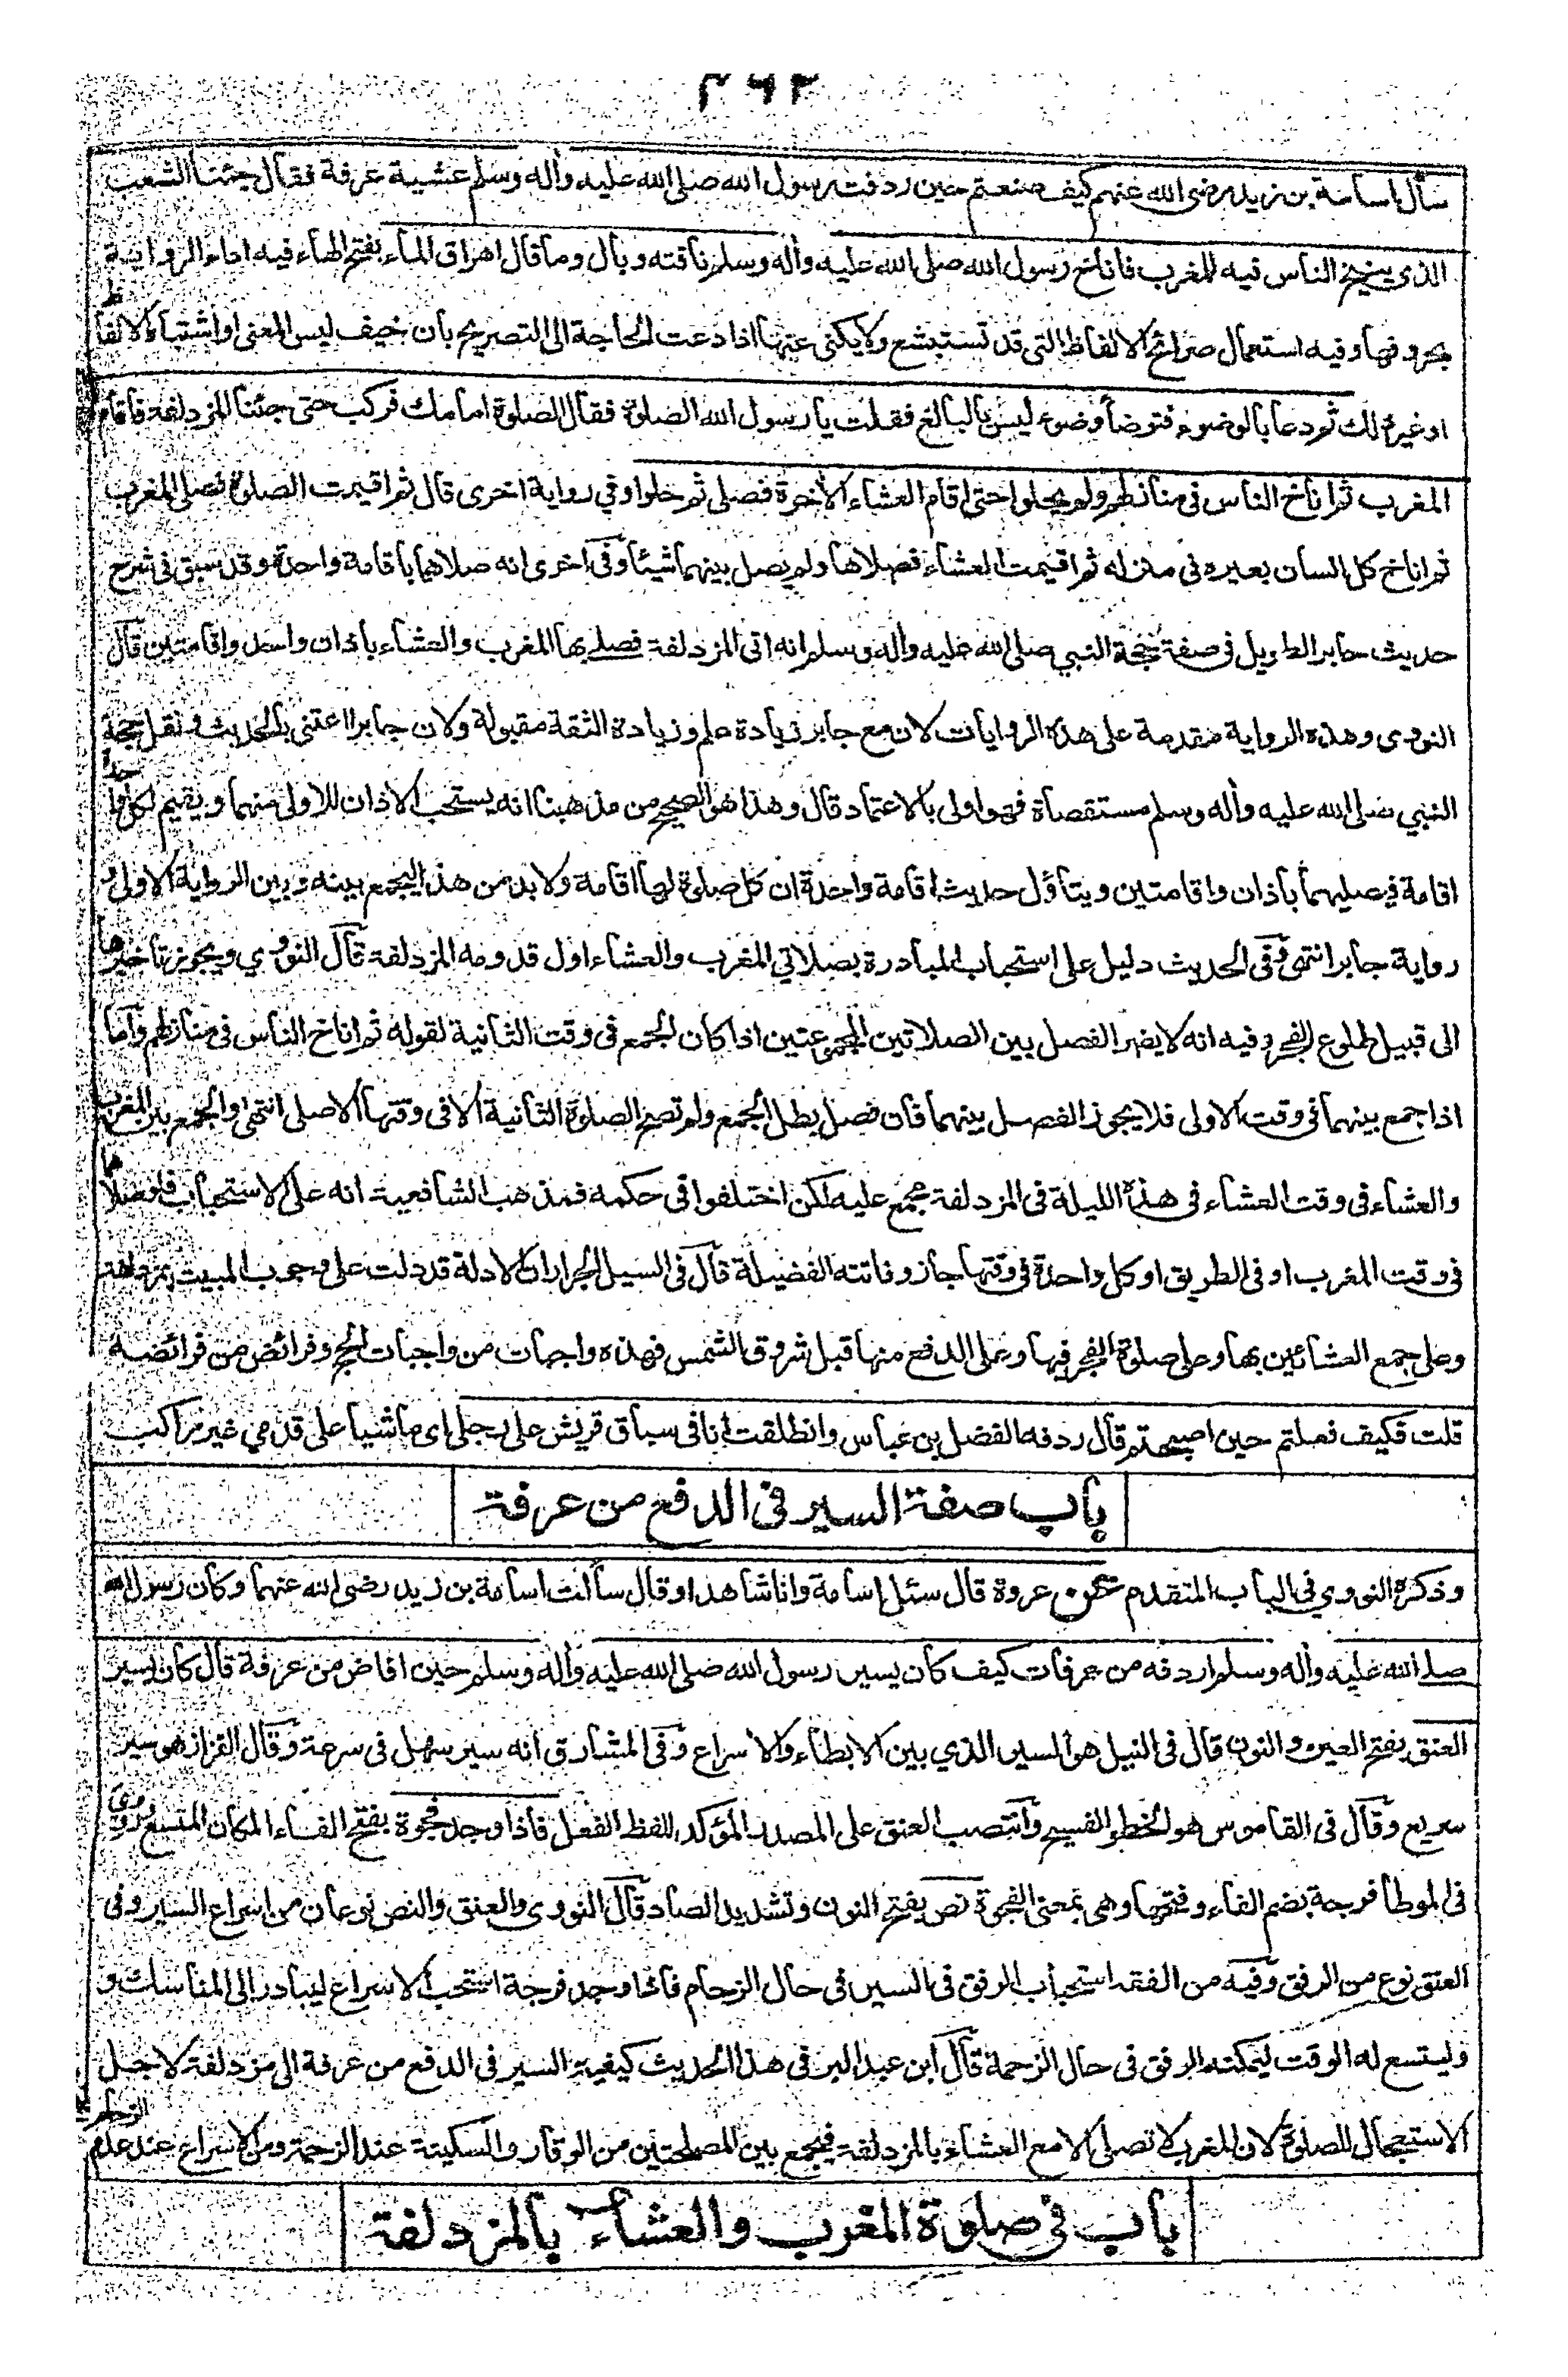 ٣٦٢
سأل اسامة بن زيد رضى الله عنهم كيف صنعتم حين ردفت رسول الله صلى الله عليه وأله وسلم عشية عرفة فقال جئنا الشعب
الذى ينيخ الناس فيه للمغرب فاناخ رسول الله صلى الله عليه وأله وسلم ناقته وبال وما قال اهراق الماء بفتح الهاء فيه اداء الرواية
بحروفها وفيه استعمال صرائح الالفاظ التى قد تستبشع ولا يكنى عنها اذا دعت الحاجة الى التصريح بان خيف لبس المعنى او اشتباه الالفاظ
او غير ذلك ثم دعا بالوضوء فتوضأ وضوء ليس بالبالغ فقلت يا رسول الله الصلوة فقال الصلوة امامك فركب حتى جئنا المزدلفة فاقام
المغرب ثم اناخ الناس فى منازلهم ولم يحلوا حتى اقام العشاء الأخرة فصلى ثم حلوا وفى رواية اخرى قال ثم اقيمت الصلوة فصلى المغرب
ثم اناخ كل انسان بعيره فى منزله ثم اقيمت العشاء فصلاها ولم يصل بينهما شيئا وفى اخرى انه صلاهما باقامة واحدة وقد سبق فى شرح
حديث جابر الطويل فى صفة حجة النبي صلى الله عليه وأله وسلم انه اتى المزدلفة فصلى بها المغرب والعشاء باذان واحد واقامتين قال
النووى وهذه الرواية مقدمة على هذه الروايات لان مع جابر زيادة علم وزيادة الثقة مقبولة ولان جابرا اعتنى بالحديث ونقل حجة
النبي صلى الله عليه وأله وسلم مستقصاة فهو اولى بالاعتماد قال وهذا هو الصحيح من مذهبنا انه يستحب الاذان للاولى منهما ويقيم لكل واحدة
اقامة فيصليهما باذان واقامتين ويتأول حديث اقامة واحدة ان كل صلوة لها اقامة ولا بد من هذا ليجمع بينه وبين الرواية الاولى و
رواية جابر انتهى وفى الحديث دليل على استحباب المبادرة بصلاتي المغرب والعشاء اول قدومه المزدلفة قال النووي ويجوز تاخيرها
الى قبيل طلوع الفجر وفيه انه لا يضر الفصل بين الصلاتين المجموعتين اذا كان الجمع فى وقت الثانية لقوله ثم اناخ الناس فى منازلهم واما
اذا جمع بينهما فى وقت الاولى فلا يجوز الفصل بينهما فان فصل بطل الجمع ولم تصح الصلوة الثانية الا فى وقتها الاصلى انتهى والجمع بين المغرب
والعشاء فى وقت العشاء فى هذه الليلة فى المزدلفة مجمع عليه لكن اختلفوا فى حكمه فمذهب الشافعية انه على الاستحباب فلو صلاهما
فى وقت المغرب او فى الطريق او كل واحدة فى وقتها جاز وفاتته الفضيلة قال فى السيل الجرار ان الادلة قد دلت على وجوب المبيت بمزدلفة
وعلى جمع العشائين بها وعلى صلوة الفجر فيها وعلى الدفع منها قبل شروق الشمس فهذه واجبات من واجبات الحج وفرائض من فرائضه
قلت فكيف فعلتم حين اصبحتم قال ردفه الفضل بن عباس وانطلقت انا فى سباق قريش على رجلى اى ماشيا على قدمي غير راكب
باب صفة السير فى الدفع من عرفة
وذكره النووي فى الباب المتقدم عن عروة قال سئل اسامة وانا شاهد او قال سألت اسامة بن زيد رضى الله عنهما وكان رسول الله
صلى الله عليه وأله وسلم اردفه من عرفات كيف كان يسير رسول الله صلى الله عليه وأله وسلم حين افاض من عرفة قال كان يسير
العنق بفتح العين والنون قال فى النيل هو السير الذي بين الابطاء والاسراع وفى المشارق انه سير سهل فى سرعة وقال القزاز هو سير
سريع وقال فى القاموس هو الخطو الفسيح وانتصب العنق على المصدر المؤكد للفظ الفعل فاذا وجد فجوة بفتح الفاء المكان المتسع وروي
فى الموطأ فرجة بضم الفاء وفتحها وهى بمعنى الفجوة نص بفتح النون وتشديد الصاد قال النووى والعنق والنص نوعان من اسراع السير وفى
العنق نوع من الرفق وفيه من الفقه استحباب الرفق فى السير فى حال الزحام فاذا وجد فرجة استحب الاسراع ليبادر الى المناسك و
وليتسع له الوقت ليمكنه الرفق فى حال الزحمة قال ابن عبد البر فى هذا الحديث كيفية السير فى الدفع من عرفة الى مزدلفة لاجل
الاستعجال للصلوة لان المغرب لا تصلى الا مع العشاء بالمزدلفة فيجمع بين المصلحتين من الوقار والسكينة عند الزحمة ومن الاسراع عند عدم الزحام
باب فى صلوة المغرب والعشاء بالمزدلفة